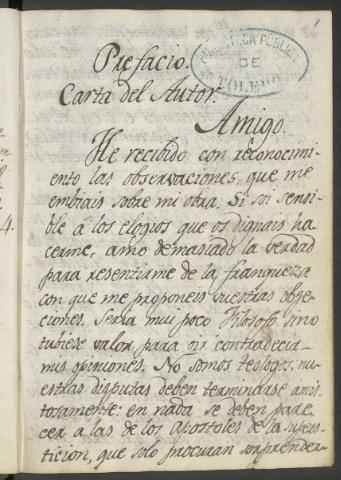 Prefacio.
BIBLIOTECA PÚBLICA
DE
TOLEDO
Carta del Autor.
Amigo.
He recibido con reconocimi-
ento las observaciones, que me
embiais sobre mi obra. Si soi sensi-
ble á los elogios que os dignais ha-
cerme, amo demasiado la verdad
para resentirme de la franqueza
con que me proponeis vuestras obje-
ciones. Seria mui poco Filosofo sino
tubiese valor para oir contradecir
mis opiniones. No somos teologos, nu-
estras disputas deben terminarse amis-
tosamente: en nada se deben pare-
cer á las de los apostoles de la supers-
ticion, que solo procuran sorprender-